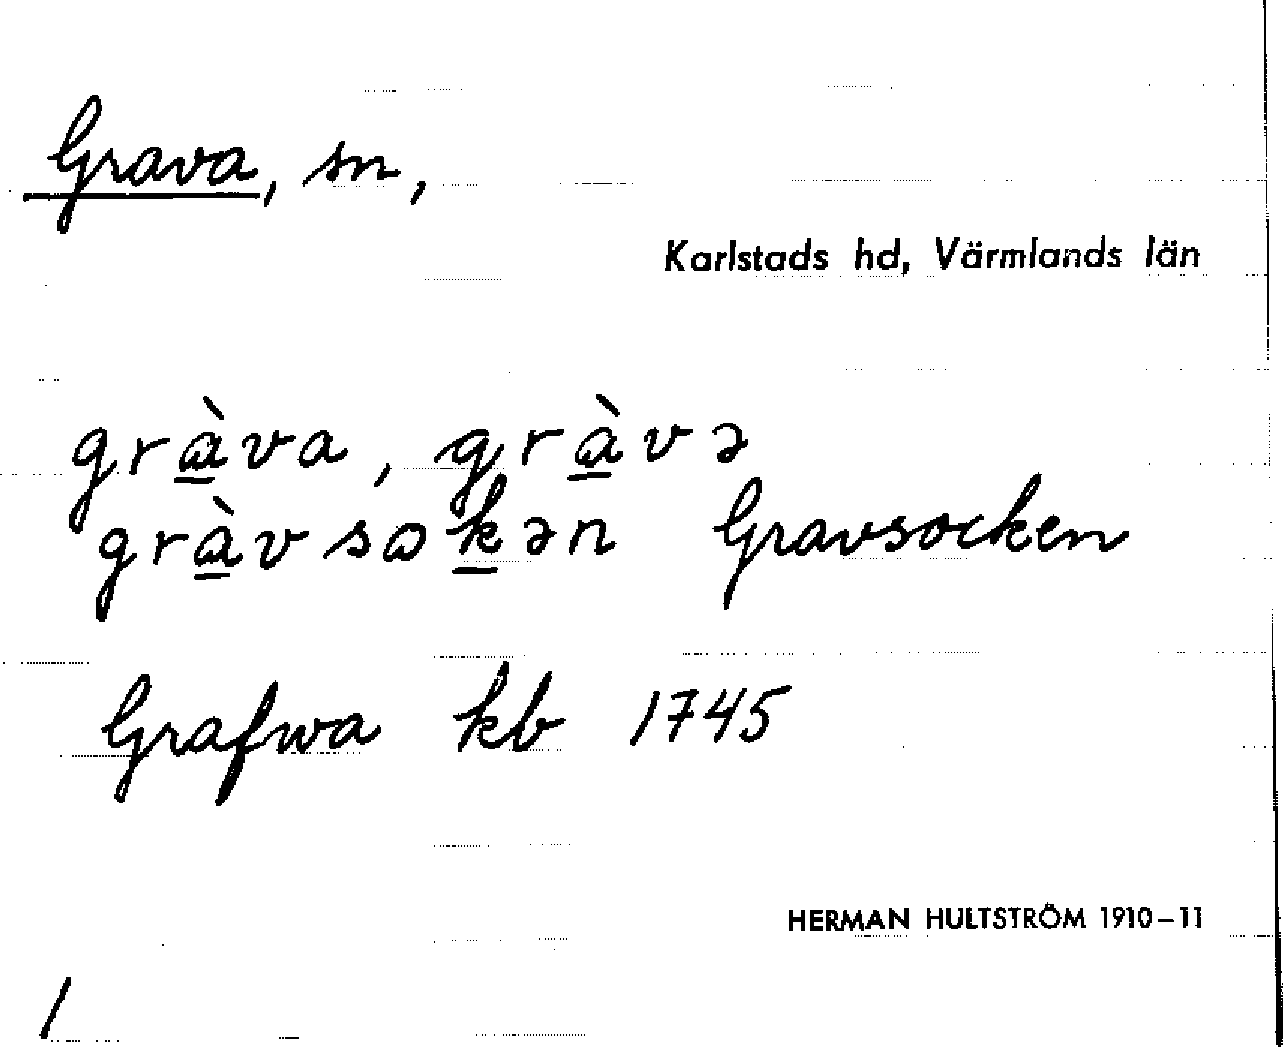 Grava, sn,
Karlstads hd, Värmlands län
gràva, gràvə
gràvsokən Gravsocken
Grafwa kb 1745
HERMAN HULTSTRÖM 1910–11
/